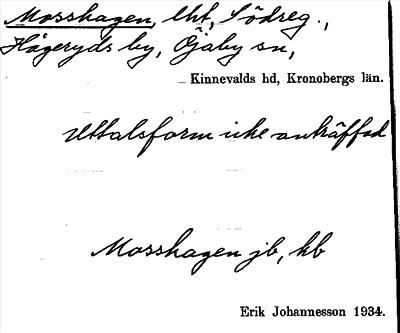 Mosshagen, lht, Södreg.,
Hågeryds by, Öjaby sn,
Kinnevalds hd, Kronobergs län.
Uttalsform icke anträffad
Mosshagen jb, kb
Erik Johannesson 1934.